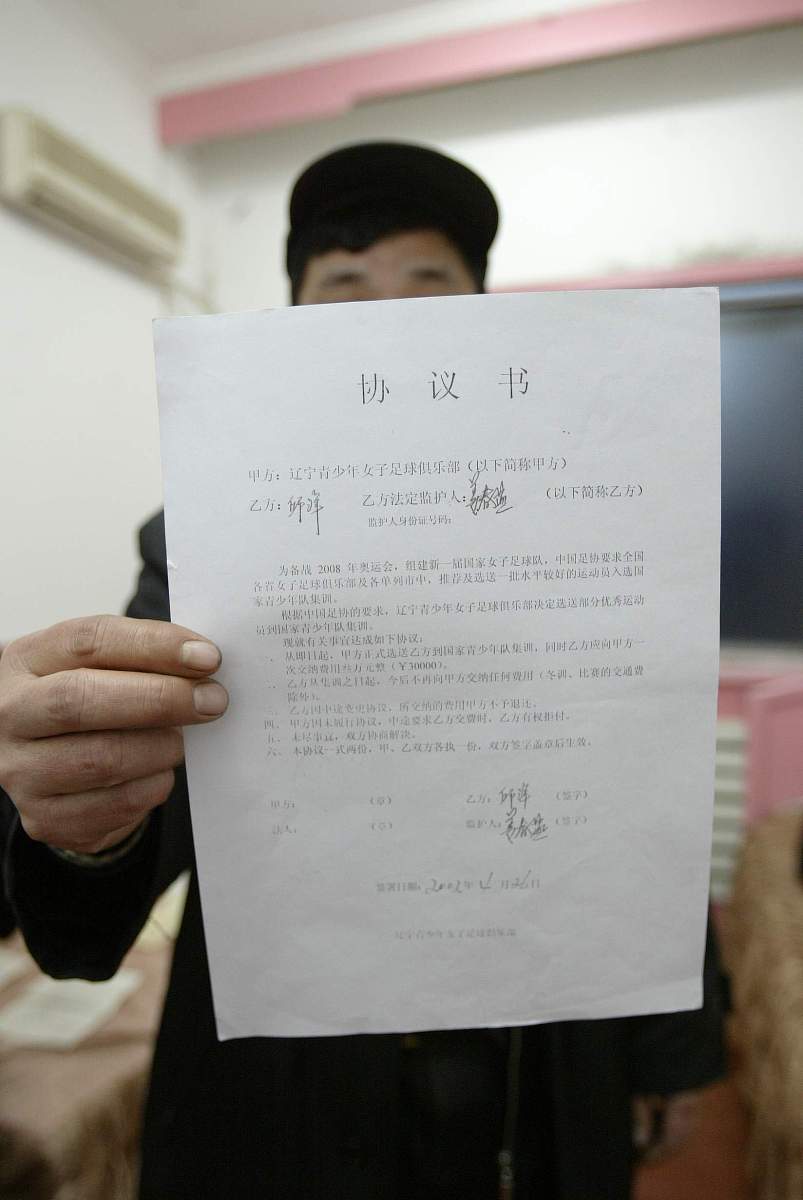 协 议 书
甲方：辽宁青少年女子足球俱乐部（以下简称甲方）
乙方： 乙方法定监护人： （以下简称乙方）
监护人身份证号码：
为备战 2008 年奥运会，组建新一届国家女子足球队，中国足协要求全国
各省女子足球俱乐部及各单列市中，推荐及选送一批水平较好的运动员入选国
家青少年队集训。
根据中国足协的要求，辽宁青少年女子足球俱乐部决定选送部分优秀运动
员到国家青少年队集训。
现就有关事宜达成如下协议：
一、 从即日起，甲方正式选送乙方到国家青少年队集训，同时乙方应向甲方一
次交纳费用叁万元整（￥30000）。
二、 乙方从集训之日起，今后不再向甲方交纳任何费用（冬训、比赛的交通费
除外）。
三、 乙方因中途变更协议，所交纳的费用甲方不予退还。
四、 甲方因未履行协议，中途要求乙方交费时，乙方有权拒付。
五、 未尽事宜，双方协商解决。
六、 本协议一式两份，甲、乙双方各执一份，双方签字盖章后生效。
甲方： （章） 乙方： （签字）
法人： （章） 监护人： （签字）
签署日期：2002 年 4 月 26 日
辽宁青少年女子足球俱乐部